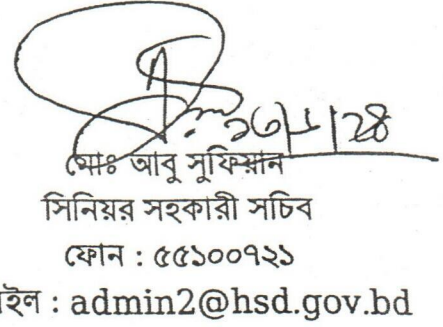 মোঃ আবু সুফিয়ান
সিনিয়র সহকারী সচিব
ফোন : ৫৫১০০৭২১
ইল : admin2@hsd.gov.bd